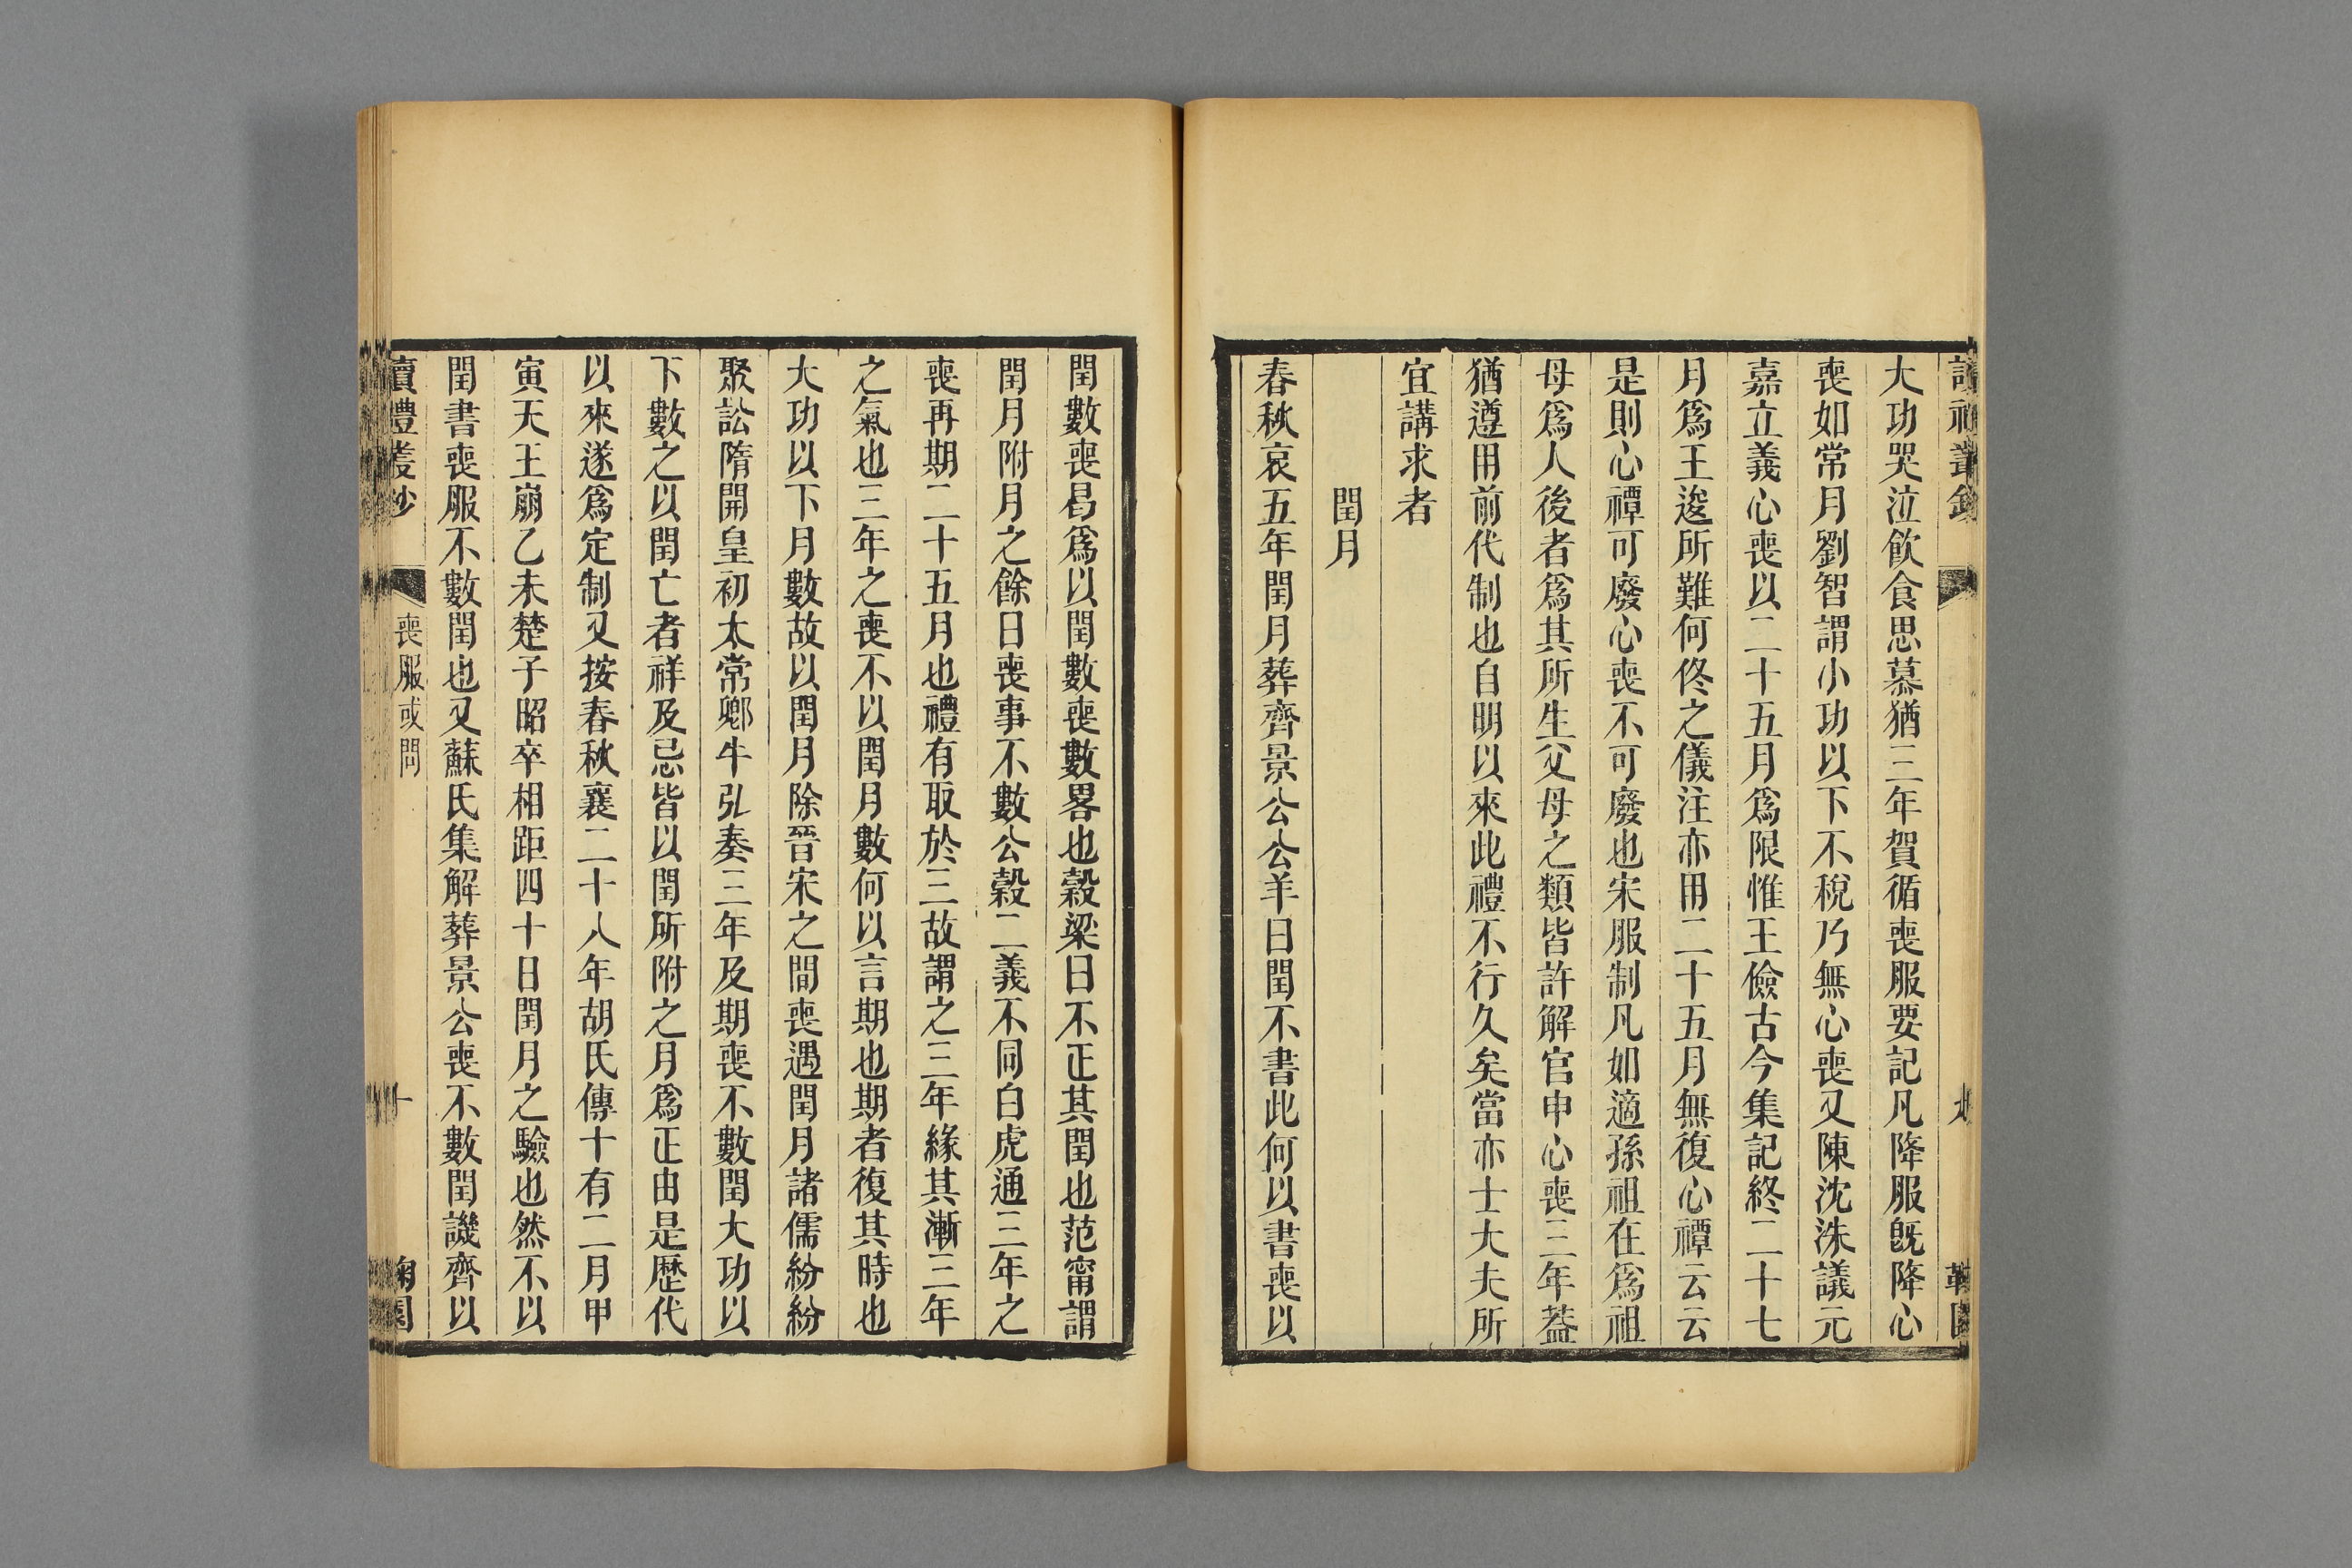 大功哭泣飲食思慕猶三年賀循喪服要記凡降服旣降心
喪如常月劉智謂小功以下不稅乃無心喪又陳沈洙議元
嘉立義心喪以二十五月爲限惟王儉古今集記終二十七
月爲王逡所難何佟之儀注亦用二十五月無復心禫云云
是則心禫可廢心喪不可廢也宋服制凡如適孫祖在爲祖
母爲人後者爲其所生父母之類皆許解官申心喪三年葢
猶遵用前代制也自明以來此禮不行久矣當亦士大夫所
宜講求者
閏月
春秋哀五年閏月葬齊景公公羊曰閏不書此何以書喪以
閏數喪曷爲以閏數喪數畧也穀梁曰不正其閏也范甯謂
閏月附月之餘日喪事不數公穀二義不同白虎通三年之
喪再期二十五月也禮有取於三故謂之三年緣其漸三年
之氣也三年之喪不以閏月數何以言期也期者復其時也
大功以下月數故以閏月除晉宋之間喪遇閏月諸儒紛紛
聚訟隋開皇初太常卿牛弘奏三年及期喪不數閏大功以
下數之以閏亡者祥及忌皆以閏所附之月爲正由是歷代
以來遂爲定制又按春秋襄二十八年胡氏傳十有二月甲
寅天王崩乙未楚子昭卒相距四十日閏月之驗也然不以
閏書喪服不數閏也又蘇氏集解葬景公喪不數閏譏齊以
讀禮叢鈔
喪服或問
十